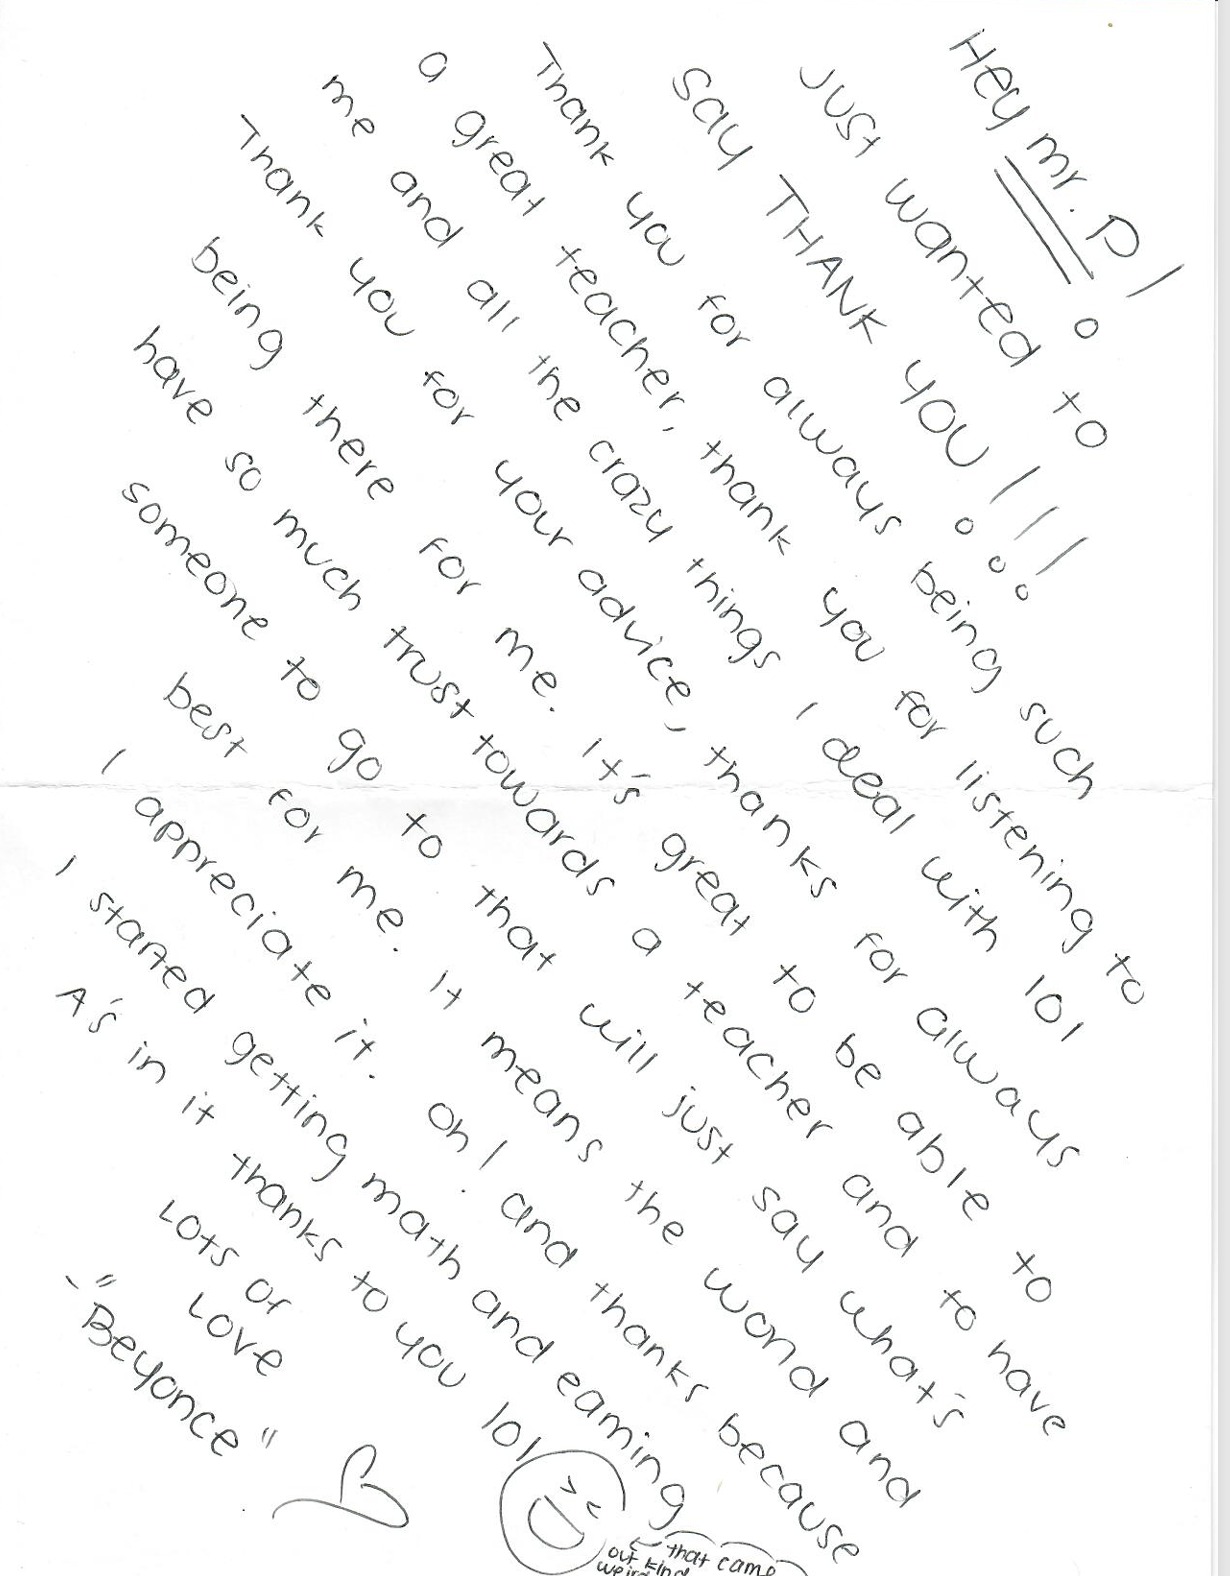 Hey mr. P!
Just wanted to
say THANK YOU!!!
Thank you for always being such
a great teacher, thank you for listening to
me and all the crazy things I deal with lol
Thank you for your advice, thanks for always
being there for me. It's great to be able to
have so much trust towards a teacher and to have
someone to go to that will just say what's
best for me. It means the world and
I appreciate it. Oh! and thanks because
I started getting math and earning
A's in it thanks to you lol
Lots of
Love
- "Beyonce"
that came
out kind